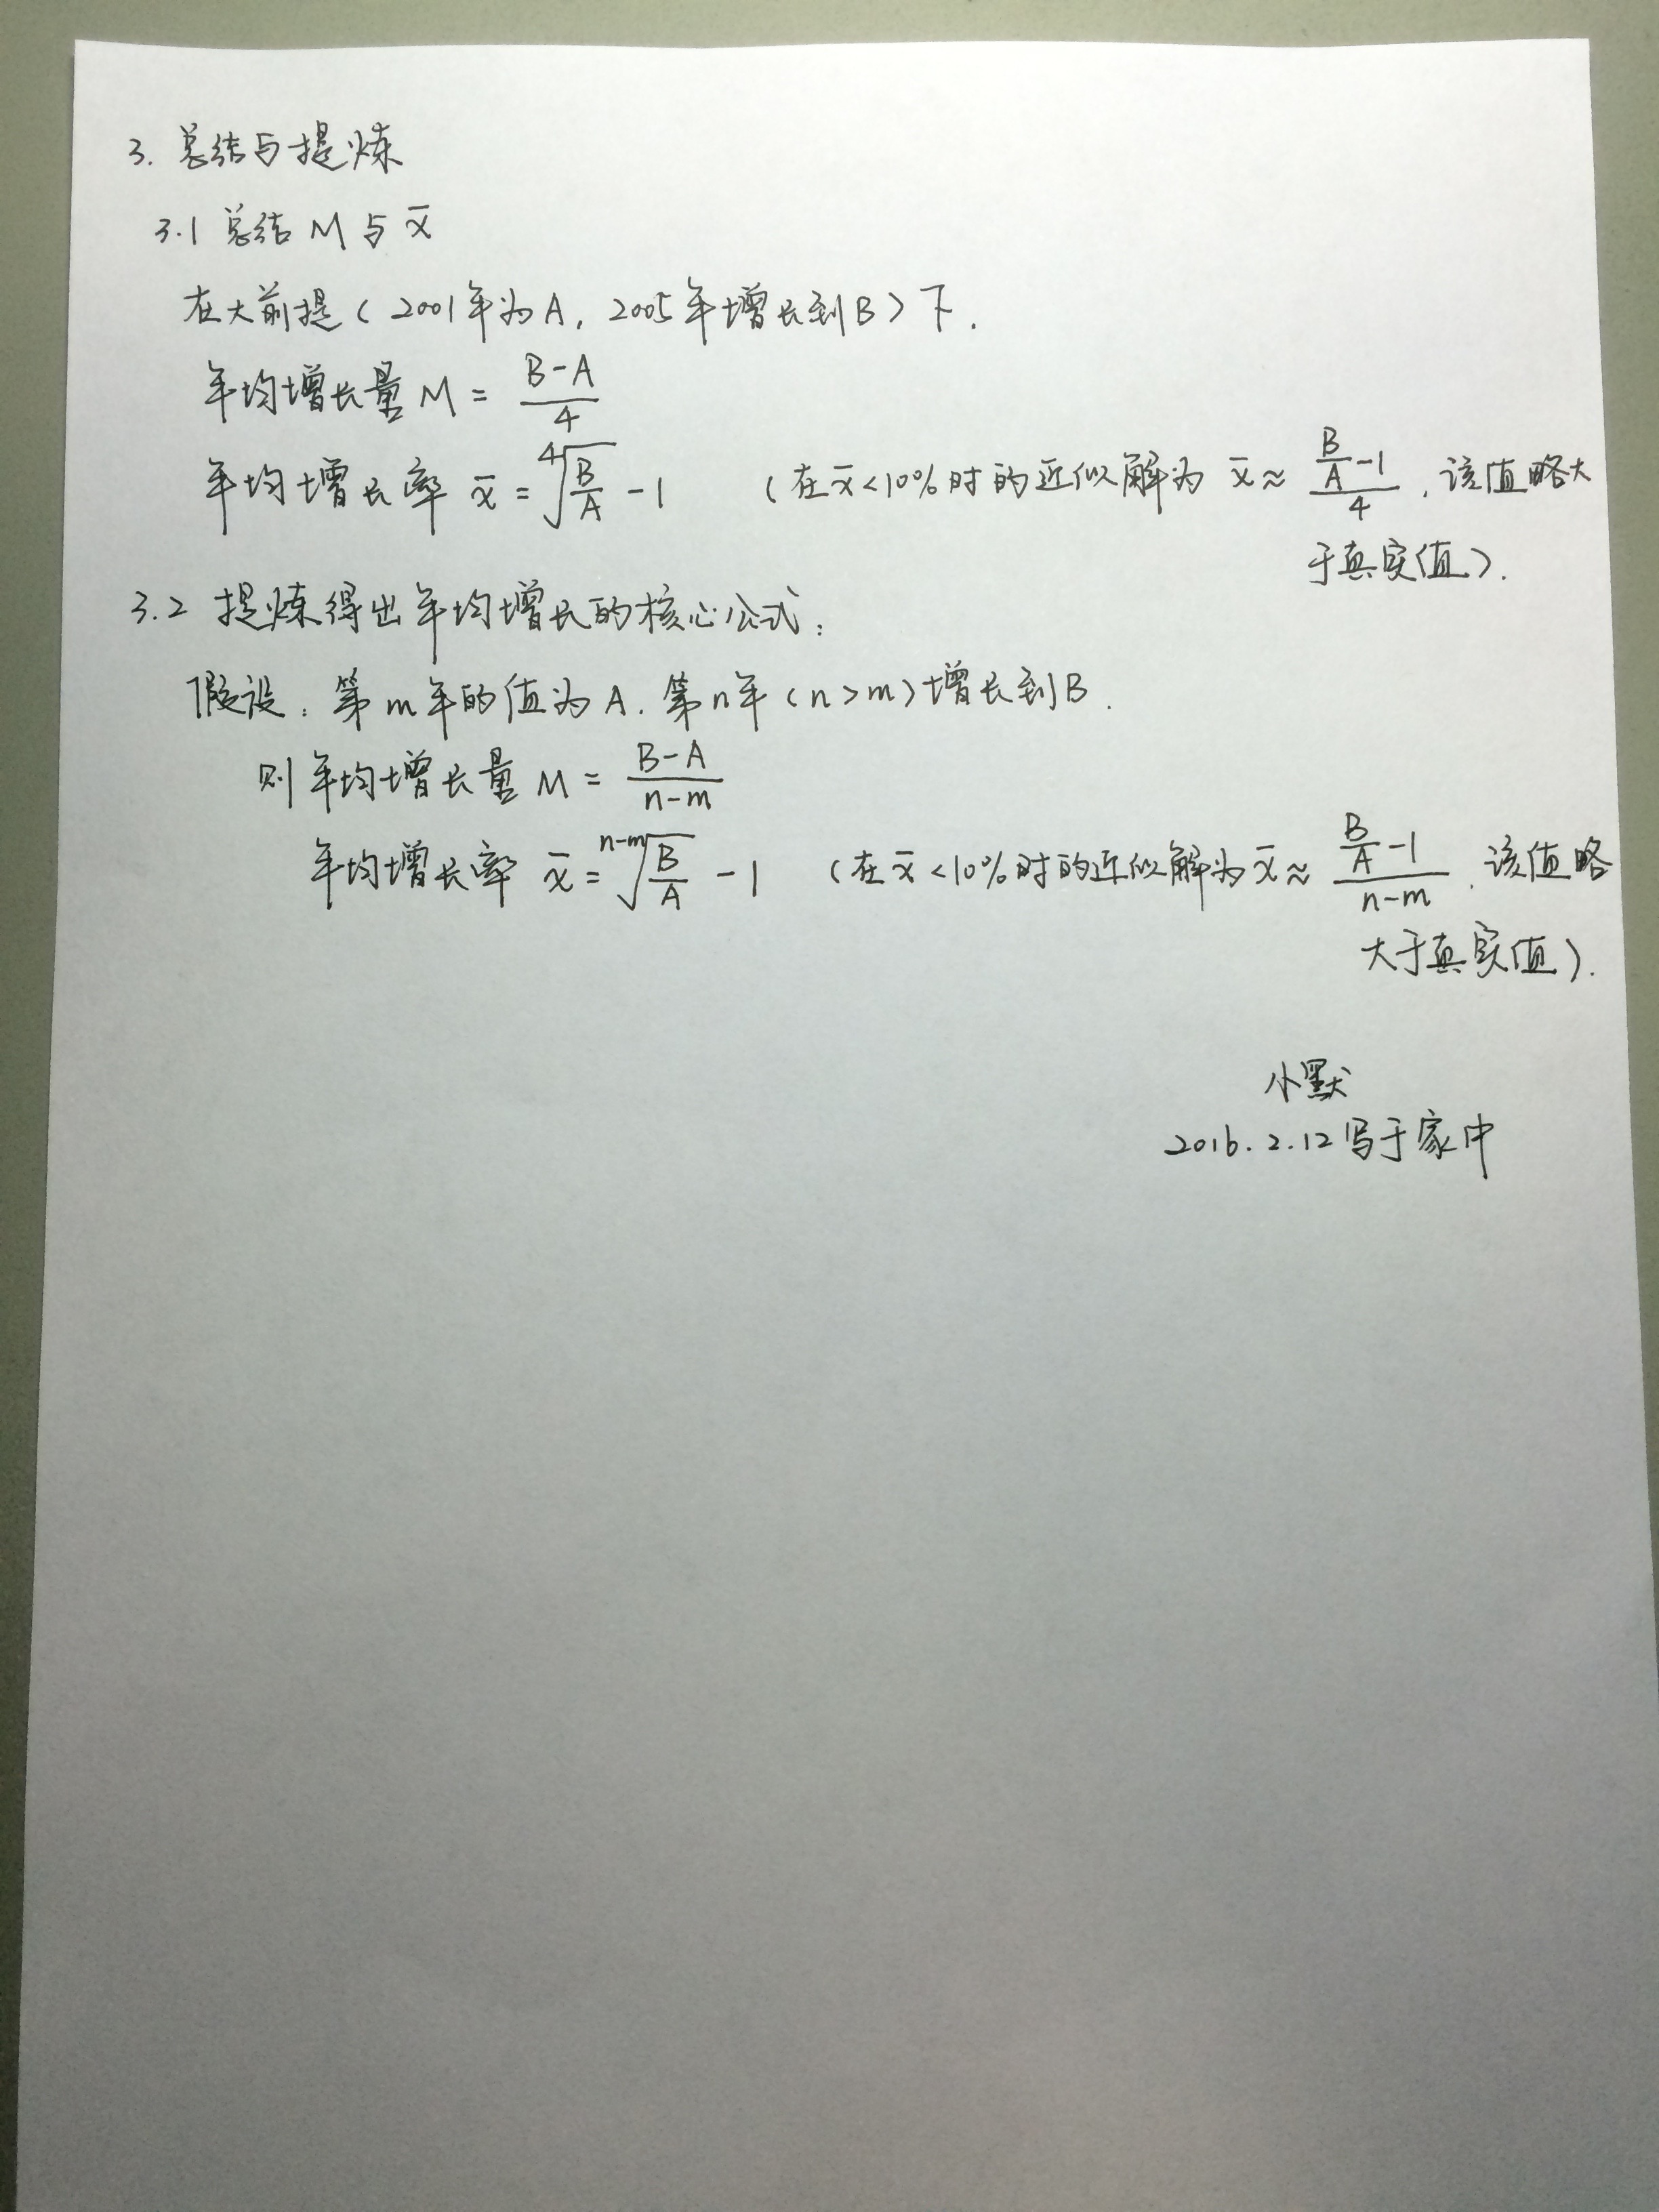 3. 总结与提炼
3.1 总结 M 与 x̄
在大前提（2001年为A，2005年增长到B）下.
年均增长量 M = (B-A)/4
年均增长率 x̄ = ⁴√(B/A) - 1 （在 x̄<10% 时的近似解为 x̄ ≈ (B/A - 1)/4 ，该值略大
于真实值）.
3.2 提炼得出年均增长的核心公式：
假设：第m年的值为A. 第n年（n>m）增长到B.
则年均增长量 M = (B-A)/(n-m)
年均增长率 x̄ = ⁿ⁻ᵐ√(B/A) - 1 （在 x̄<10% 时的近似解为 x̄ ≈ (B/A - 1)/(n-m) ，该值略
大于真实值）.
小默
2016.2.12 写于家中